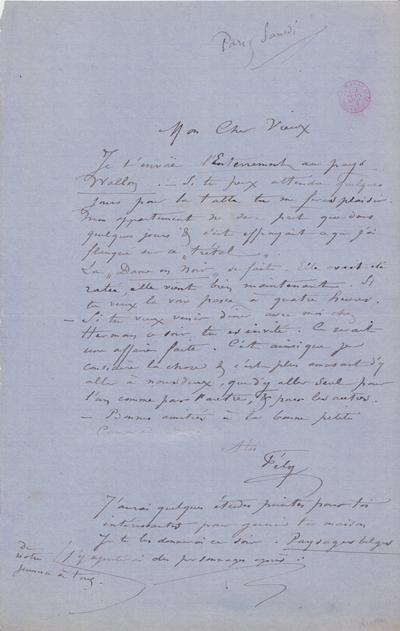 Paris Samedi
Mon Cher Vieux
Je t'envoie l'Enterrement au pays
Wallon. — Si tu peux attendre quelques
jours pour la table tu me feras plaisir.
Mon appartement ne sera prêt que dans
quelques jours & c'est effrayant ce que j'ai
flanqué sur ce "tretal".
La "Dame en Noir" se fait. Elle avait été
ratée, elle vient bien maintenant. Si
tu veux la voir passe à quatre heures.
— Si tu veux venir dîner avec moi chez
Herman ce soir, tu es invité. Ce serait
une affaire faite. C'est ainsi que je
considère la chose & c'est plus amusant d'y
aller à nous deux, que d'y aller seul pour
l'un comme pour l'autre, & pour les autres.
— Bonnes amitiés à la bonne petite
A toi
Fély
J'aurai quelques études peintes pour toi
intéressantes pour garnir ta maison
Je te les donnerai ce soir. Paysages belges
J'y ajouterai des personnages après.
de
notre
jeunesse à tous